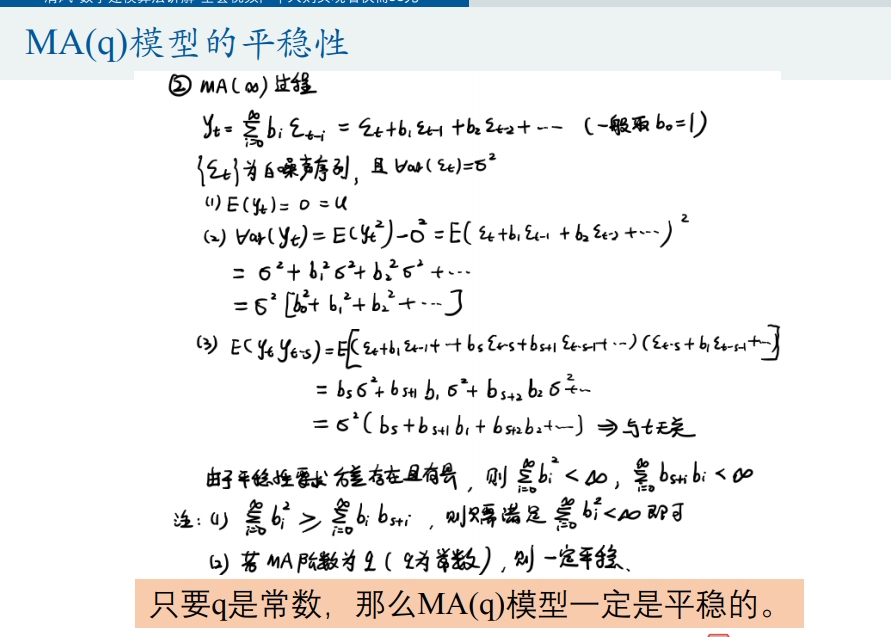 MA(q)模型的平稳性
② MA(∞)过程
yₜ = ∑_{i=0}^{∞} bᵢ εₜ₋ᵢ = εₜ+b₁εₜ₋₁+b₂εₜ₋₂+⋯ (一般取 b₀=1)
{εₜ}为白噪声序列, 且 Var(εₜ)=σ²
(1) E(yₜ)= 0 = u
(2) Var(yₜ) = E(yₜ²)-0² = E( εₜ+b₁εₜ₋₁ + b₂εₜ₋₂ +⋯ )²
= σ²+ b₁²σ²+ b₂²σ² +⋯
= σ² [b₀²+ b₁²+ b₂² +⋯]
(3) E(yₜ yₜ₋ₛ) = E[(εₜ+b₁εₜ₋₁+⋯+bₛεₜ₋ₛ+bₛ₊₁εₜ₋ₛ₋₁+⋯)(εₜ₋ₛ+b₁εₜ₋ₛ₋₁+⋯)]
= bₛσ²+ bₛ₊₁ b₁ σ²+ bₛ₊₂ b₂ σ²+⋯
= σ²( bₛ+bₛ₊₁b₁+ bₛ₊₂b₂+⋯) ⇒ 与t无关
由于平稳性要求方差存在且有界, 则 ∑_{i=0}^{∞} bᵢ² < ∞, ∑_{i=0}^{∞} bₛ₊ᵢ bᵢ < ∞
注: (1) ∑_{i=0}^{∞} bᵢ² ≥ ∑_{i=0}^{∞} bᵢ bₛ₊ᵢ , 则只需满足 ∑_{i=0}^{∞} bᵢ² < ∞ 即可
(2) 若 MA 阶数为 q ( q为常数), 则一定平稳.
只要q是常数，那么MA(q)模型一定是平稳的。